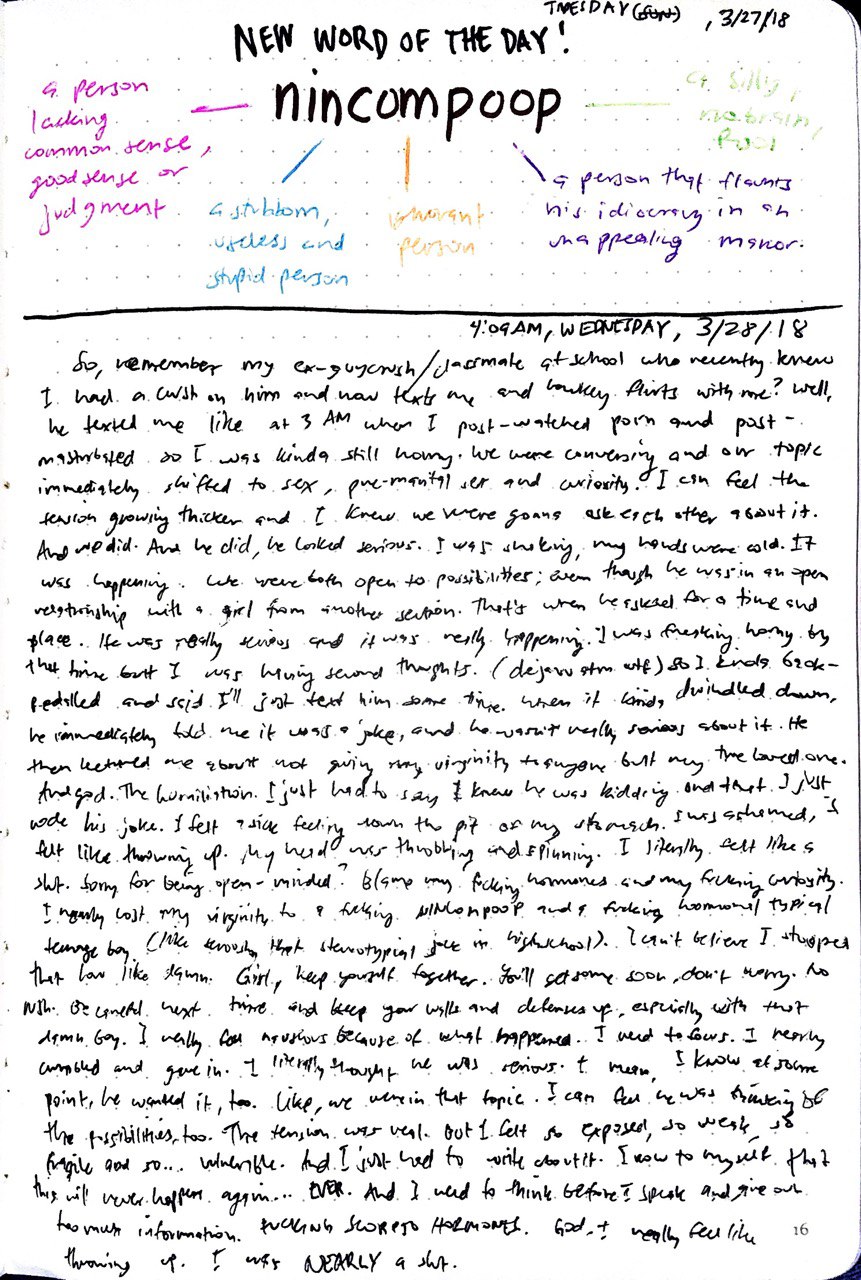 TUESDAY , 3/27/18
NEW WORD OF THE DAY!
nincompoop
a person
lacking
common sense,
good sense or
judgment
a stubborn,
useless and
stupid person
ignorant
person
a person that flaunts
his idiocracy in an
unappealing manor.
a silly,
fool
4:09 AM, WEDNESDAY, 3/28/18
So, remember my ex-guycrush/classmate at school who recently knew
I had a crush on him and now texts me and lowkey flirts with me? Well,
he texted me like at 3 AM when I post-watched porn and post-
masturbated so I was kinda still horny. We were conversing and our topic
immediately shifted to sex, pre-marital sex and curiosity. I can feel the
tension growing thicker and I knew we were gonna ask each other about it.
And we did. And he did, he looked serious. I was shaking, my hands were cold. It
was happening. We were both open to possibilities; even though he was in an open
relationship with a girl from another section. That's when he asked for a time and
place. He was really serious and it was really happening. I was freaking horny by
that time but I was having second thoughts. (dejavu atm wtf) so I kinda back-
pedalled and said I'll just text him some time. When it kinda dwindled down,
he immediately told me it was a joke, and he wasn't really serious about it. He
then lectured me about not giving my virginity to anyone but my true loved one.
And god. The humiliation. I just had to say I knew he was kidding and that I just
rode his joke. I felt a sick feeling down the pit of my stomach. I was ashamed, I
felt like throwing up. My head was throbbing and spinning. I literally felt like a
slut. Sorry for being open-minded? Blame my fcking hormones and my fcking curiosity.
I nearly lost my virginity to a fucking nincompoop and a fucking hormonal typical
teenage boy (like seriously that stereotypical jock in highschool). I can't believe I stooped
that low like damn. Girl, keep yourself together. You'll get some soon, don't worry. No
rush. Be careful next time and keep your walls and defenses up, especially with that
damn boy. I really feel nauseous because of what happened. I need to focus. I nearly
crumbled and gave in. I literally thought he was serious. I mean, I know at some
point, he wanted it, too. Like, we were in that topic. I can feel he was thinking of
the possibilities, too. The tension was real. But I felt so exposed, so weak, so
fragile and so... vulnerable. And I just had to write about it. I vow to myself that
this will never happen again... EVER. And I need to think before I speak and give out
too much information. FUCKING SCORPIO HORMONES. God, I really feel like
throwing up. I was NEARLY a slut.
16